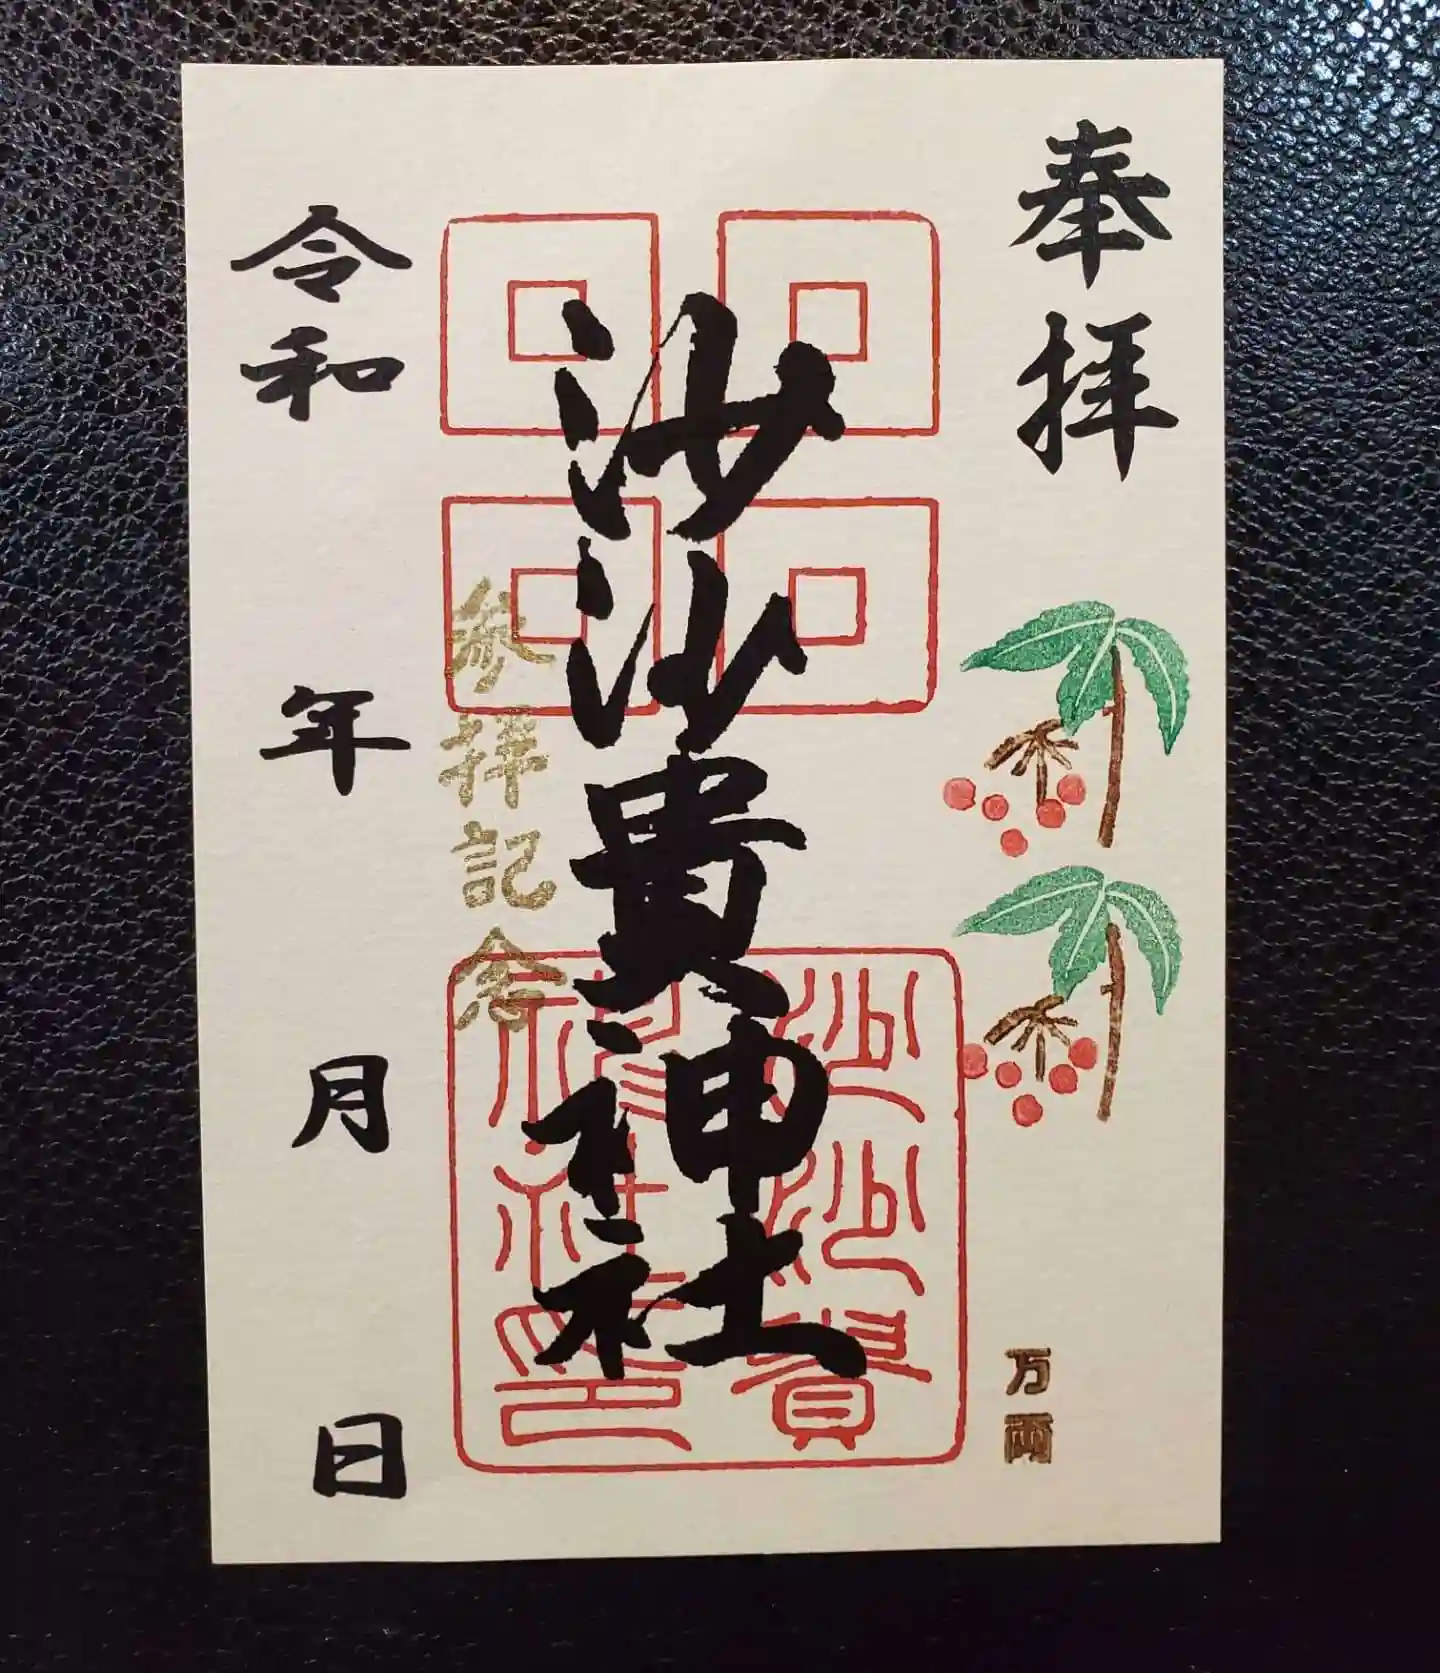 奉拝
万両
沙沙貴神社
沙沙貴
神社印
参拝記念
令和 年 月 日